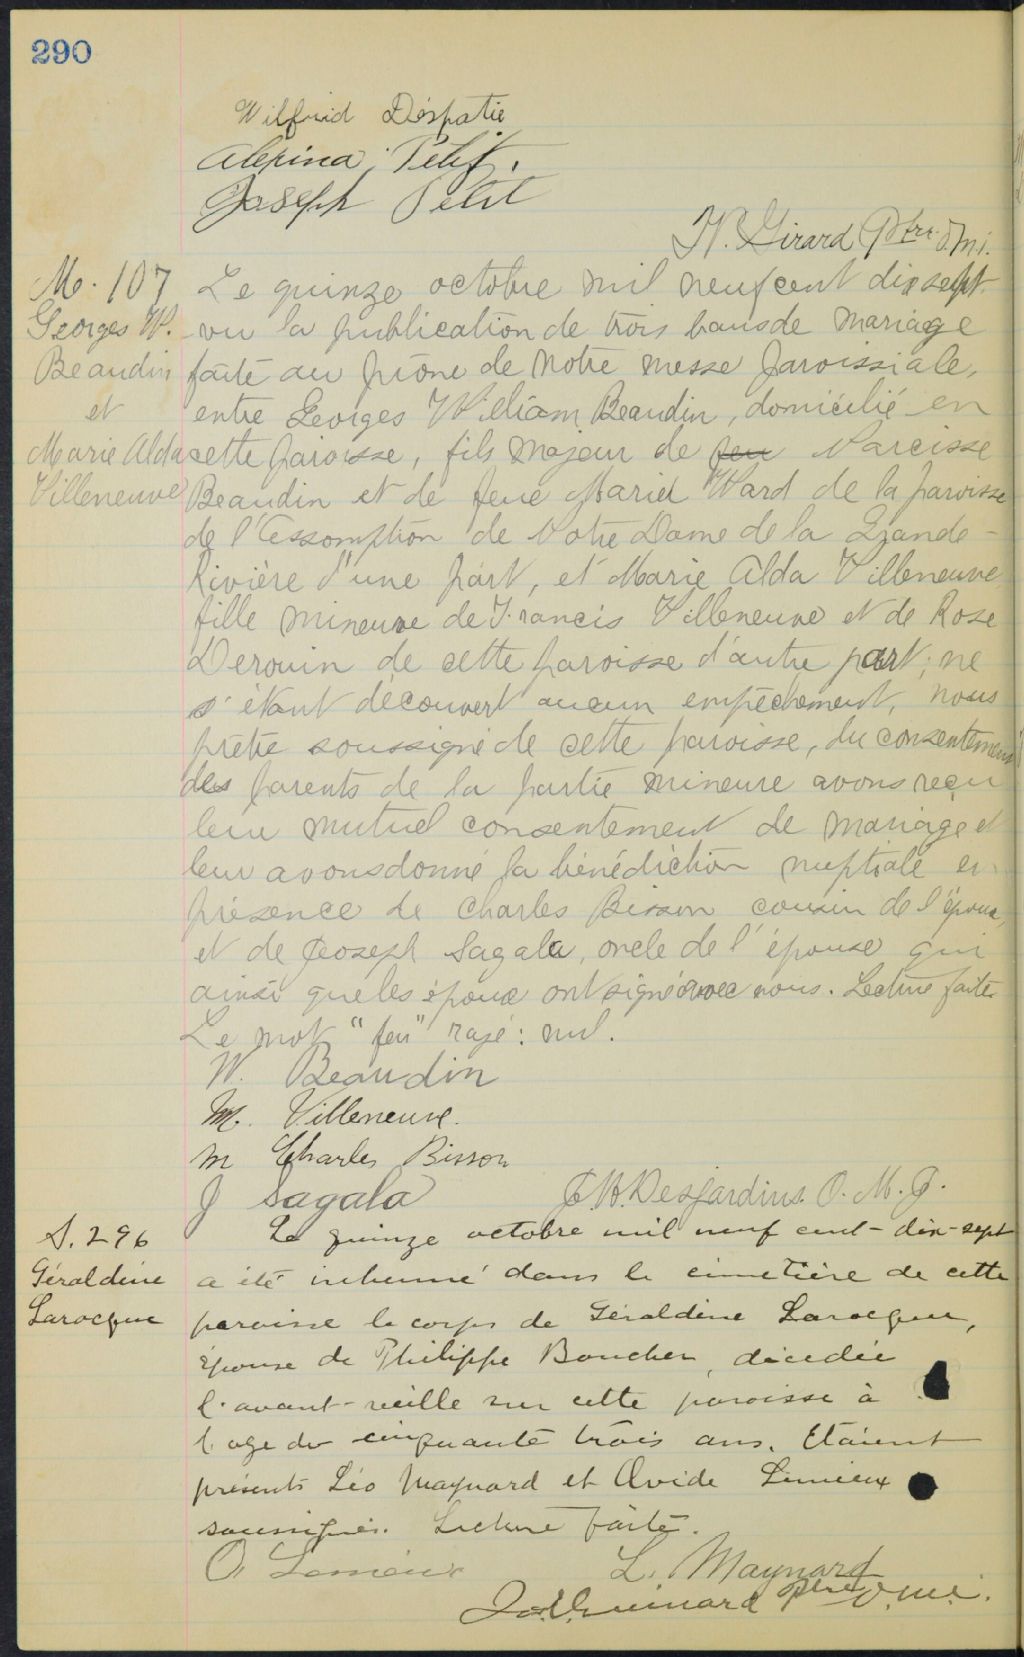 290
Wilfrid Déspatie
Alexina Petit.
Joseph Petit
H. Girard Ptre. O.M.I.
M. 107
Georges W.
Beaudin
et
Marie Alda
Villeneuve
Le quinze octobre mil neuf cent dix sept
vu la publication de trois bans de mariage
faite au prône de notre messe paroissiale,
entre Georges William Beaudin, domicilié en
cette paroisse, fils majeur de feu Narcisse
Beaudin et de feue Marie Ward de la paroisse
de l'Assomption de Notre Dame de la Grande-
Rivière d'une part, et Marie Alda Villeneuve,
fille mineure de Francis Villeneuve et de Rose
Derouin de cette paroisse d'autre part; ne
s'étant découvert aucun empêchement, nous
prêtre soussigné de cette paroisse, du consentement
des parents de la partie mineure avons reçu
leur mutuel consentement de mariage et
leur avons donné la bénédiction nuptiale en
présence de Charles Bisson cousin de l'époux,
et de Joseph Sagala, oncle de l'épouse qui
ainsi que les époux ont signé avec nous. Lecture faite
Le mot "feu" rayé: nul.
W. Beaudin
M. Villeneuve.
M Charles Bisson
J Sagala
J. H. Desjardins. O. M. J.
S. 296
Géraldine
Larocque
Le quinze octobre mil neuf cent-dix-sept
a été inhumé dans le cimetière de cette
paroisse le corps de Géraldine Larocque,
épouse de Philippe Boucher, décédée
l'avant-veille sur cette paroisse à
l'age de cinquante trois ans. Etaient
présents Léo Maynard et Ovide Lemieux
soussignés. Lecture faite.
O, Lemieux
L. Maynard
Jos. Guinard ptre O.M.I.